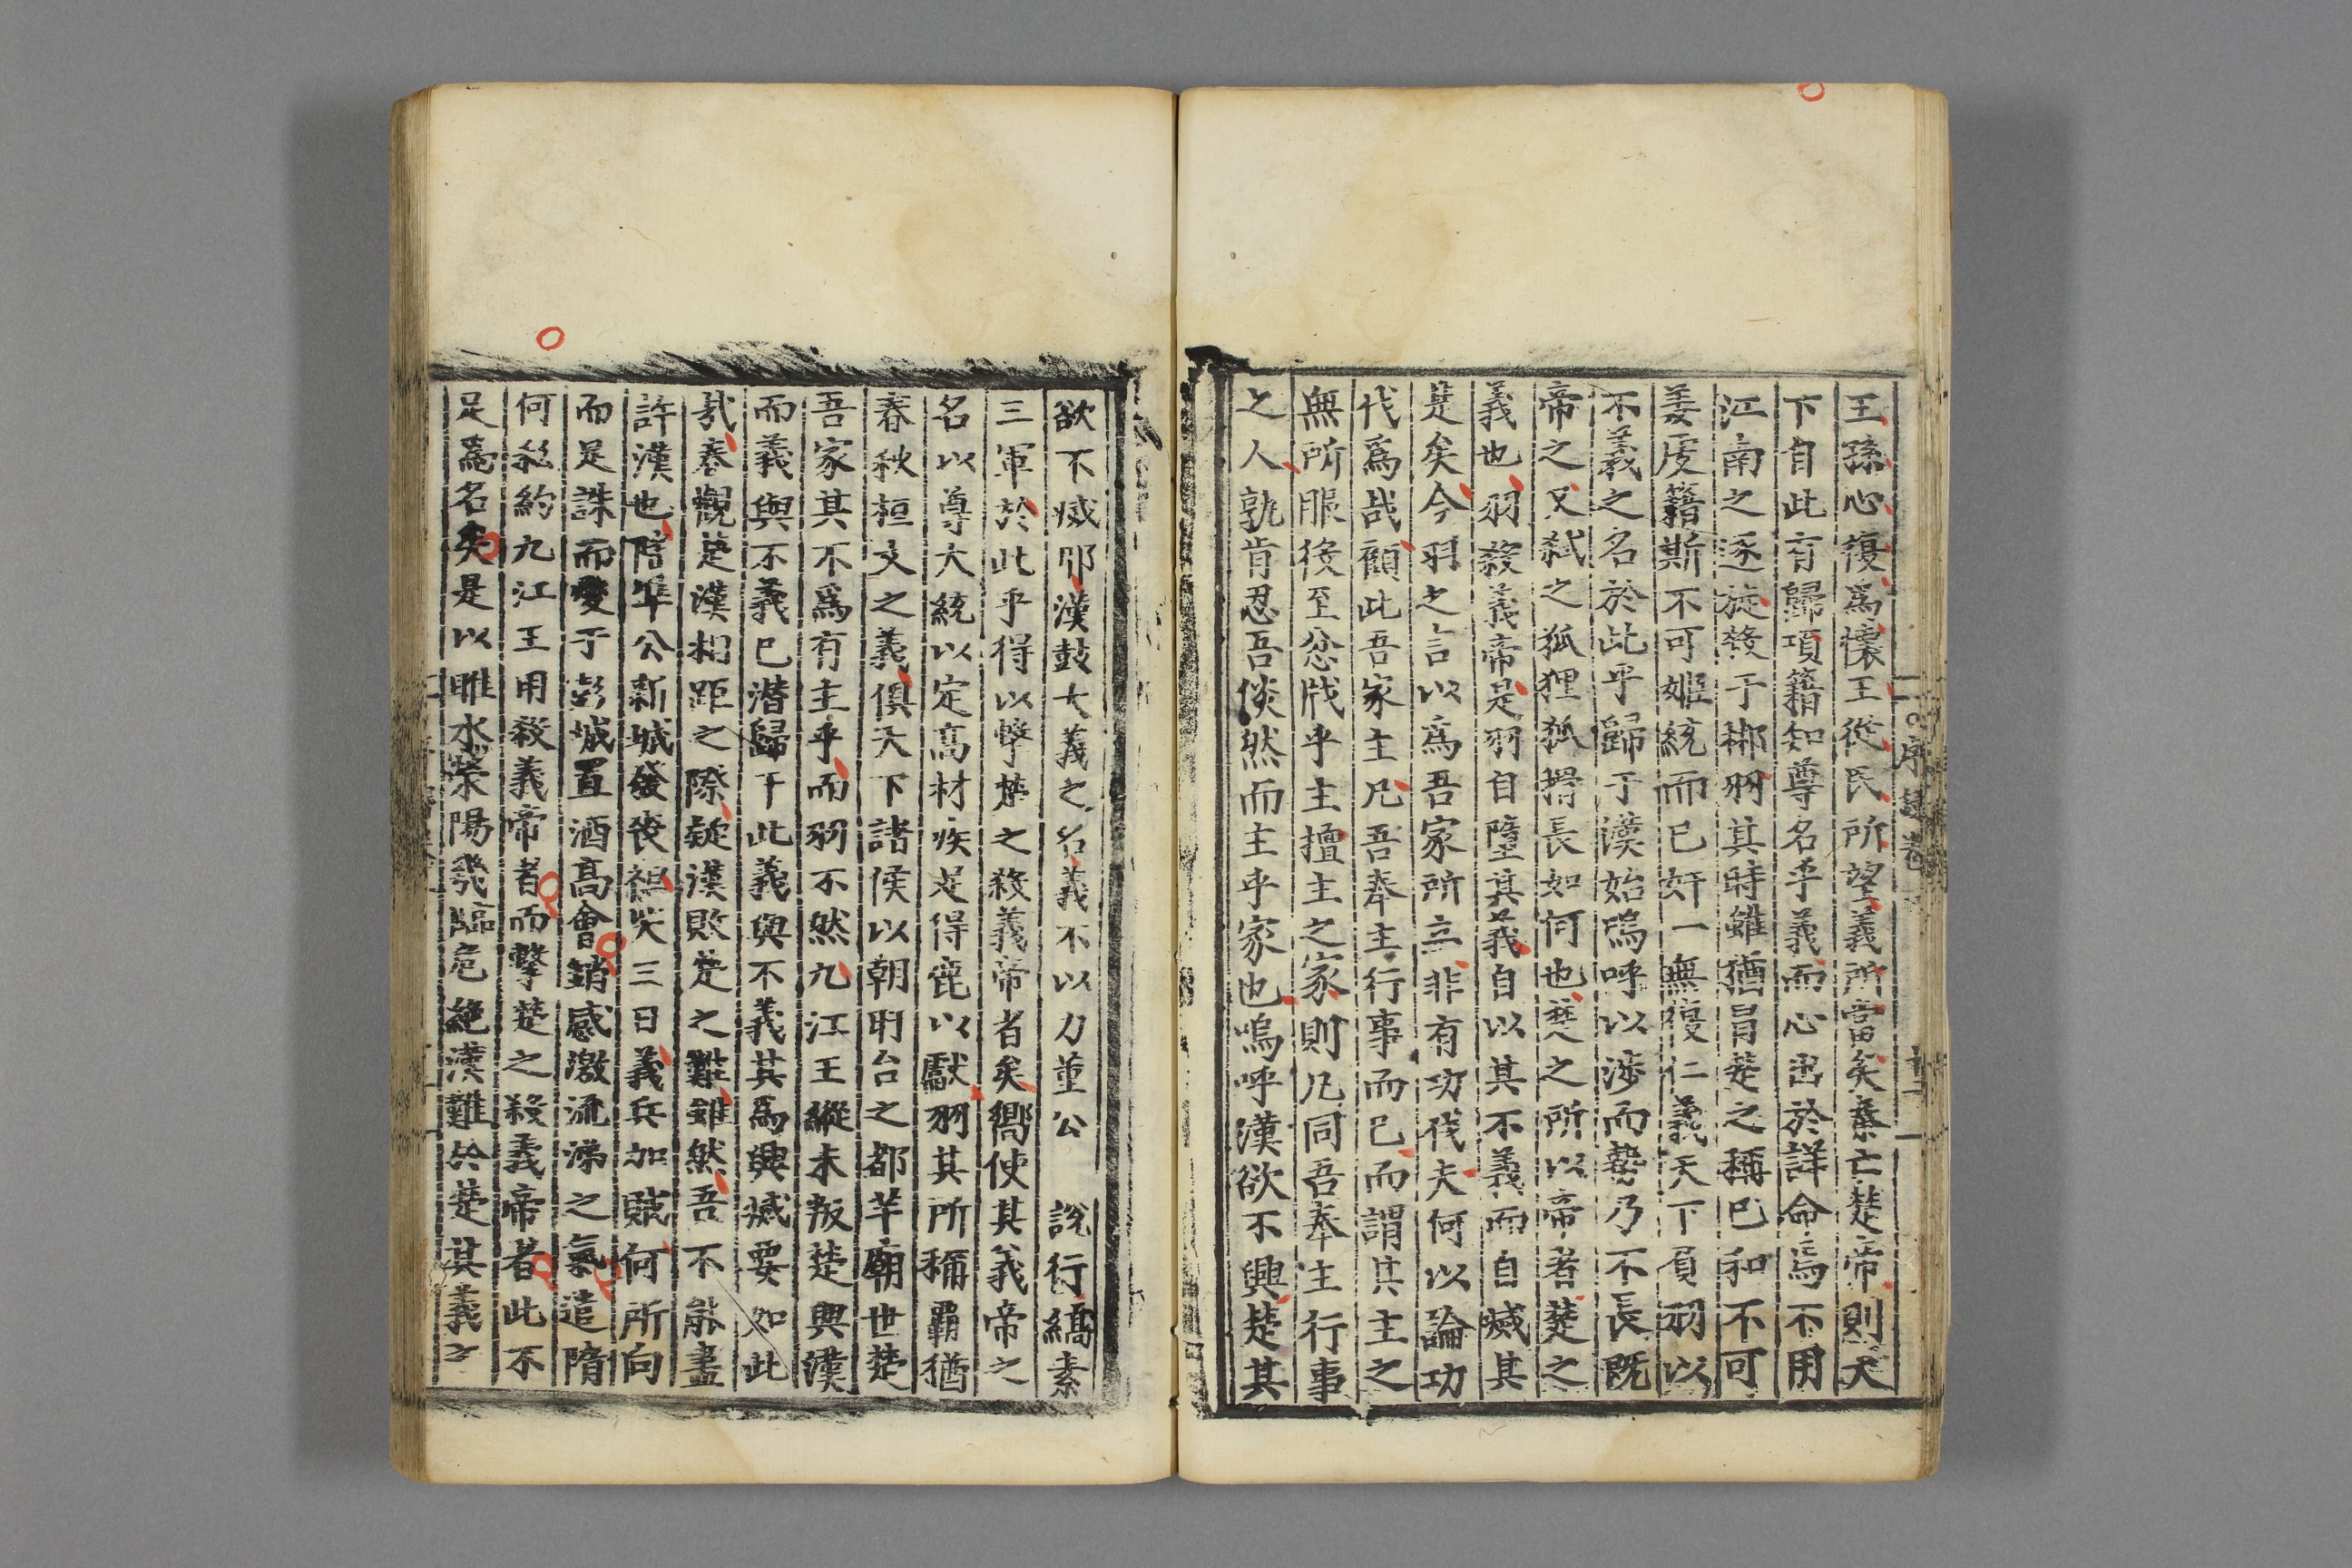 王孫心復爲懷王從民所望義所當矣秦亡楚帝則天
下自此有歸項籍知尊名乎義而心出於詳命焉不用
江南之逐旋發于郴羽其時雖猶冒楚之稱已和不可
姜虔籍斯不可姬統而已奸一無復仁義天下負羽以
不義之名於此乎歸于漢始嗚呼以涉而勢乃不長既
帝之又弑之狐狸狐搰長如何也楚之所以帝者楚之
義也羽殺義帝是羽自墮其義自以其不義而自臧其
是矣今羽之言以爲吾家所立非有功伐夫何以論功
伐爲哉顧此吾家主凡吾奉主行事而已而謂其主之
無所服後至忿戕乎主擅主之家則凡同吾奉主行事
之人孰肯忍吾倓然而主乎家也嗚呼漢欲不興楚其
序
卷
欲不烕耶漢鼓大義之名義不以力董公 說行縞素
三軍於此乎得以擊楚之殺義帝者矣嚮使其義帝之
名以尊大統以定高材疾足得鹿以獻羽其所稱霸猶
春秋桓文之義俱天下諸侯以朝明台之都芉廟世楚
吾家其不爲有主乎而羽不然九江王縱未叛楚與漢
而義與不義已潜歸于此義與不義其爲興臧要如此
哉奉觀楚漢相距之際疑漢敗楚之難雖然吾不能盡
許漢也陪隼公新城發喪袒哭三日義兵加賊何所向
而足誅而變于彭城置酒高會銷感激流涕之氣遣隋
何私約九江王用殺義帝者而擊楚之殺義帝者此不
足爲名矣是以睢水滎陽幾臨危絶漢難於楚其義之